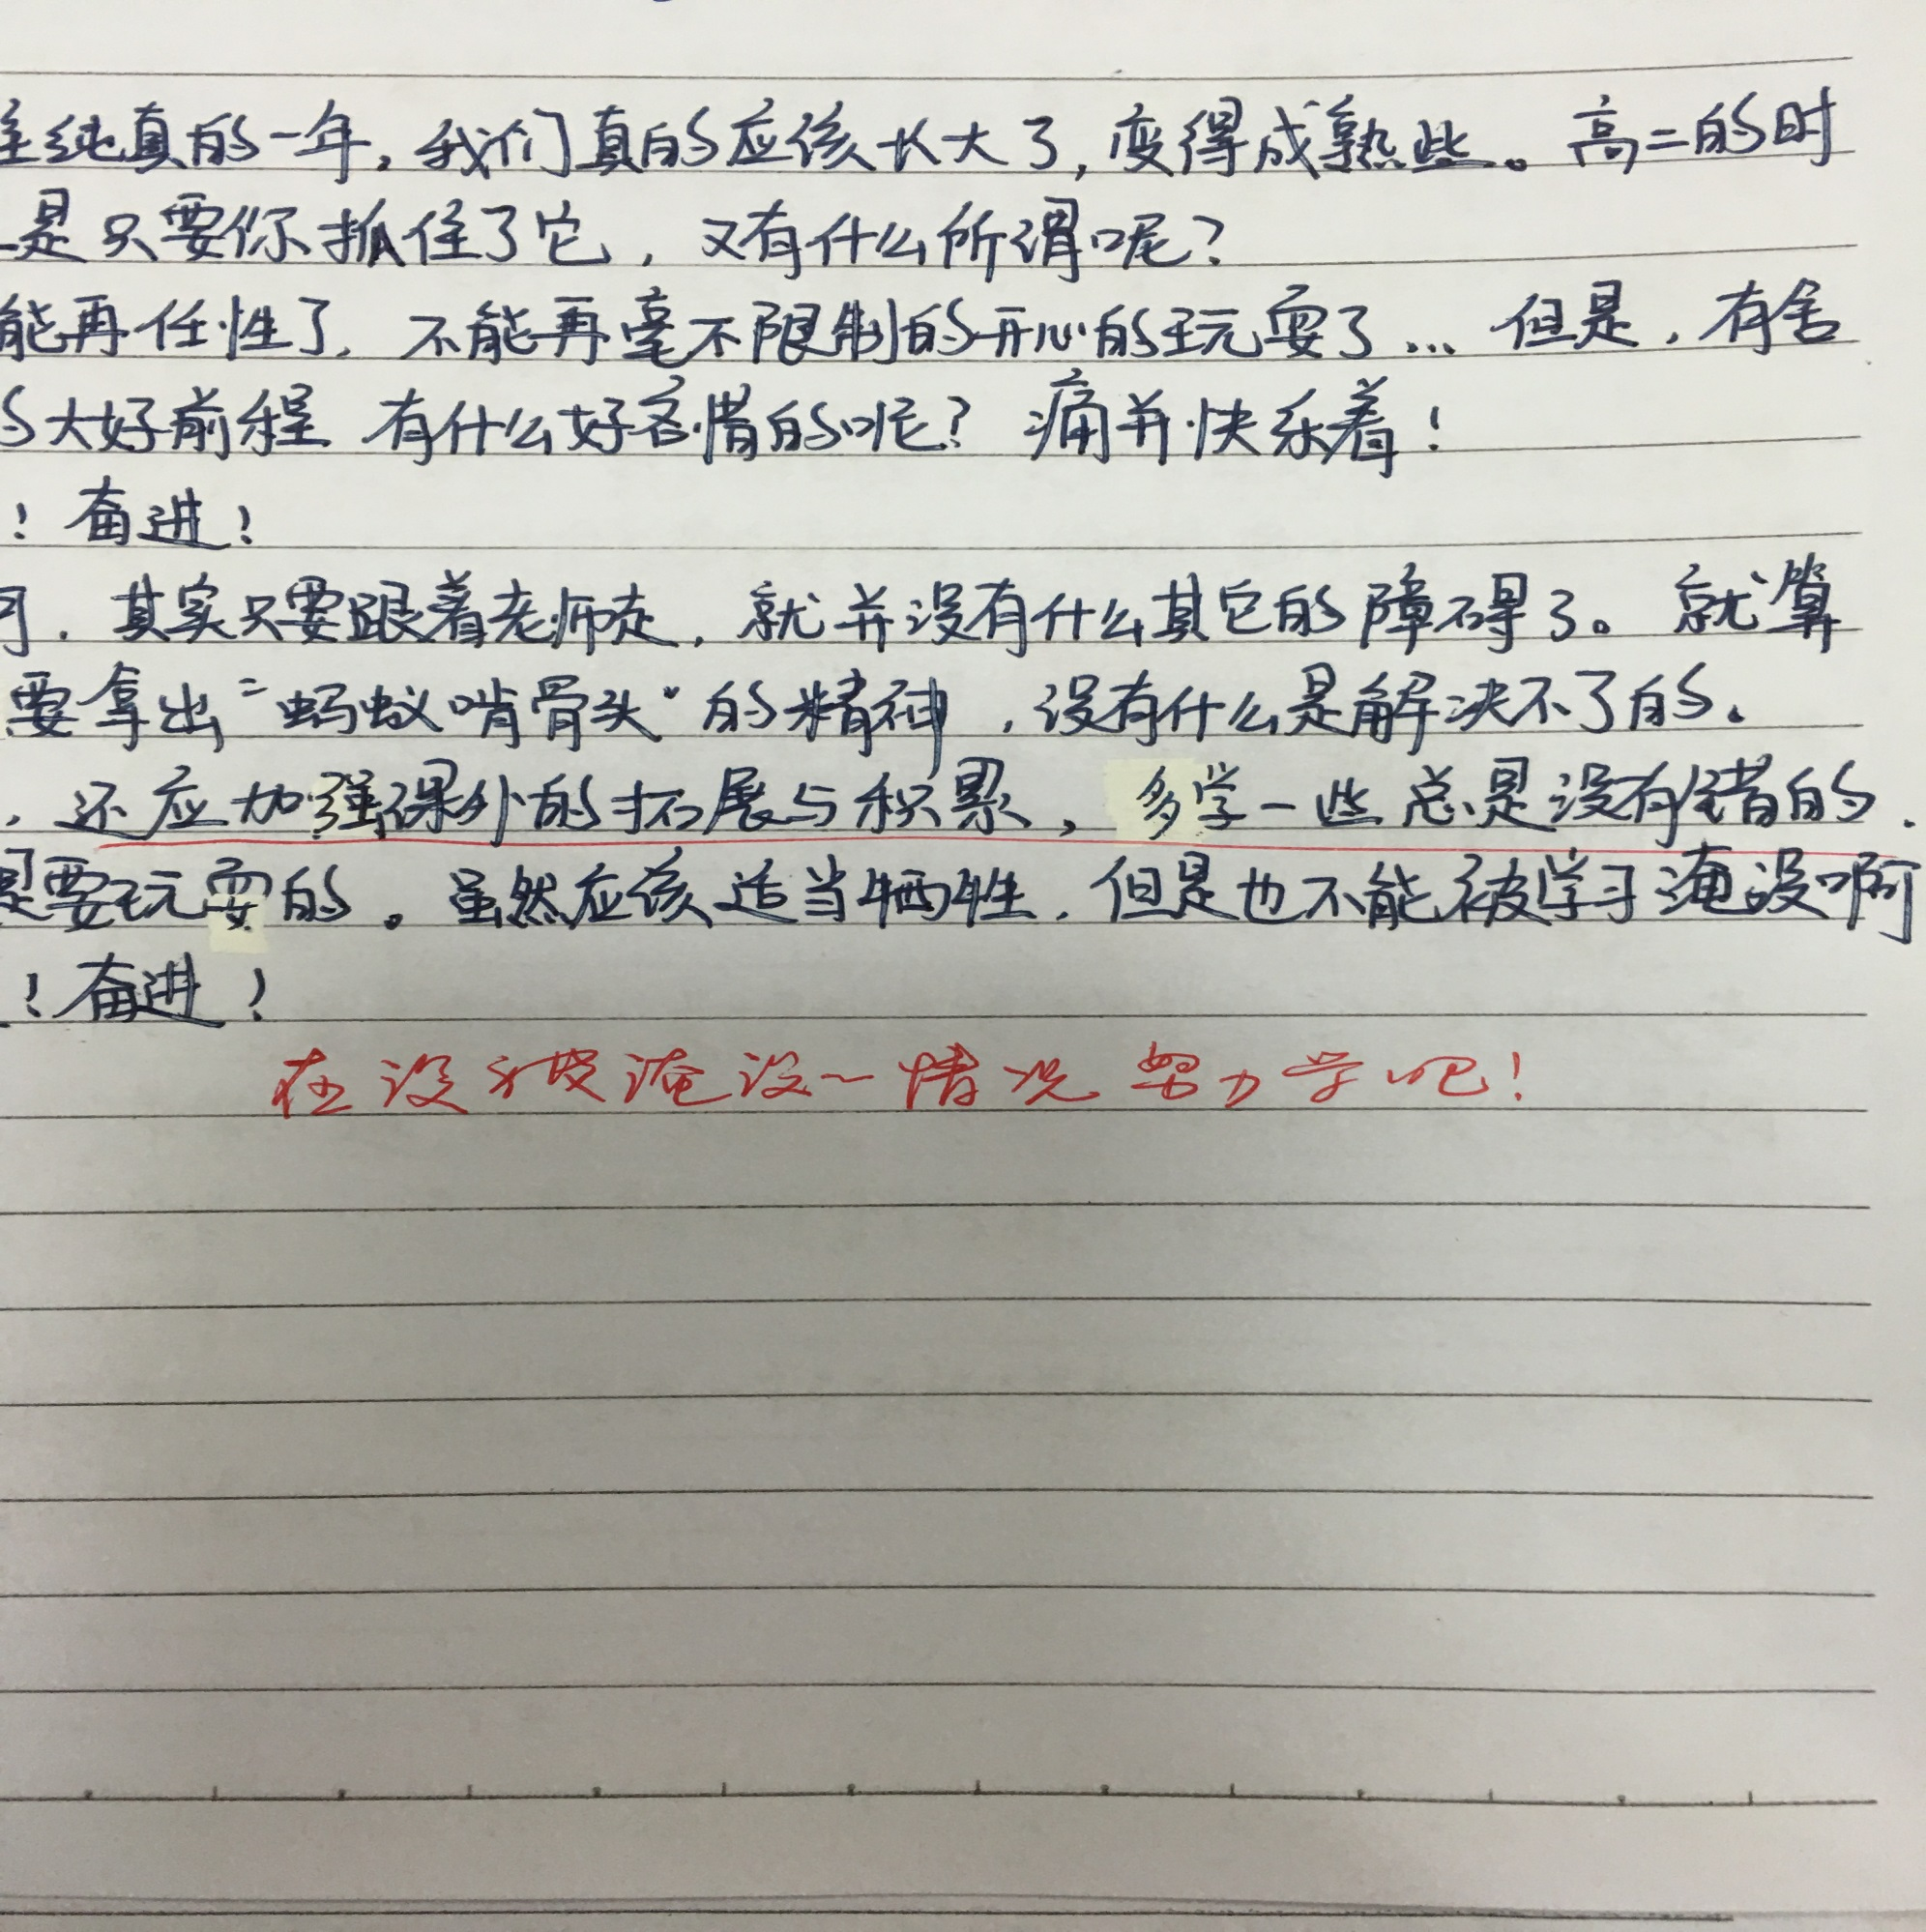 纯真的一年，我们真的应该长大了，变得成熟些。高二的时
是只要你抓住了它，又有什么所谓呢？
能再任性了，不能再毫不限制的开心的玩耍了... 但是，有舍
大好前程 有什么好吝惜的呢？痛并快乐着！
！奋进！
，其实只要跟着老师走，就并没有什么其它的障碍了。就算
要拿出“蚂蚁啃骨头”的精神，没有什么是解决不了的。
，还应加强课外的拓展与积累，多学一些总是没有错的．
是要玩耍的。虽然应该适当牺牲，但是也不能被学习淹没啊
！奋进！
在没被淹没 情况 努力学吧！